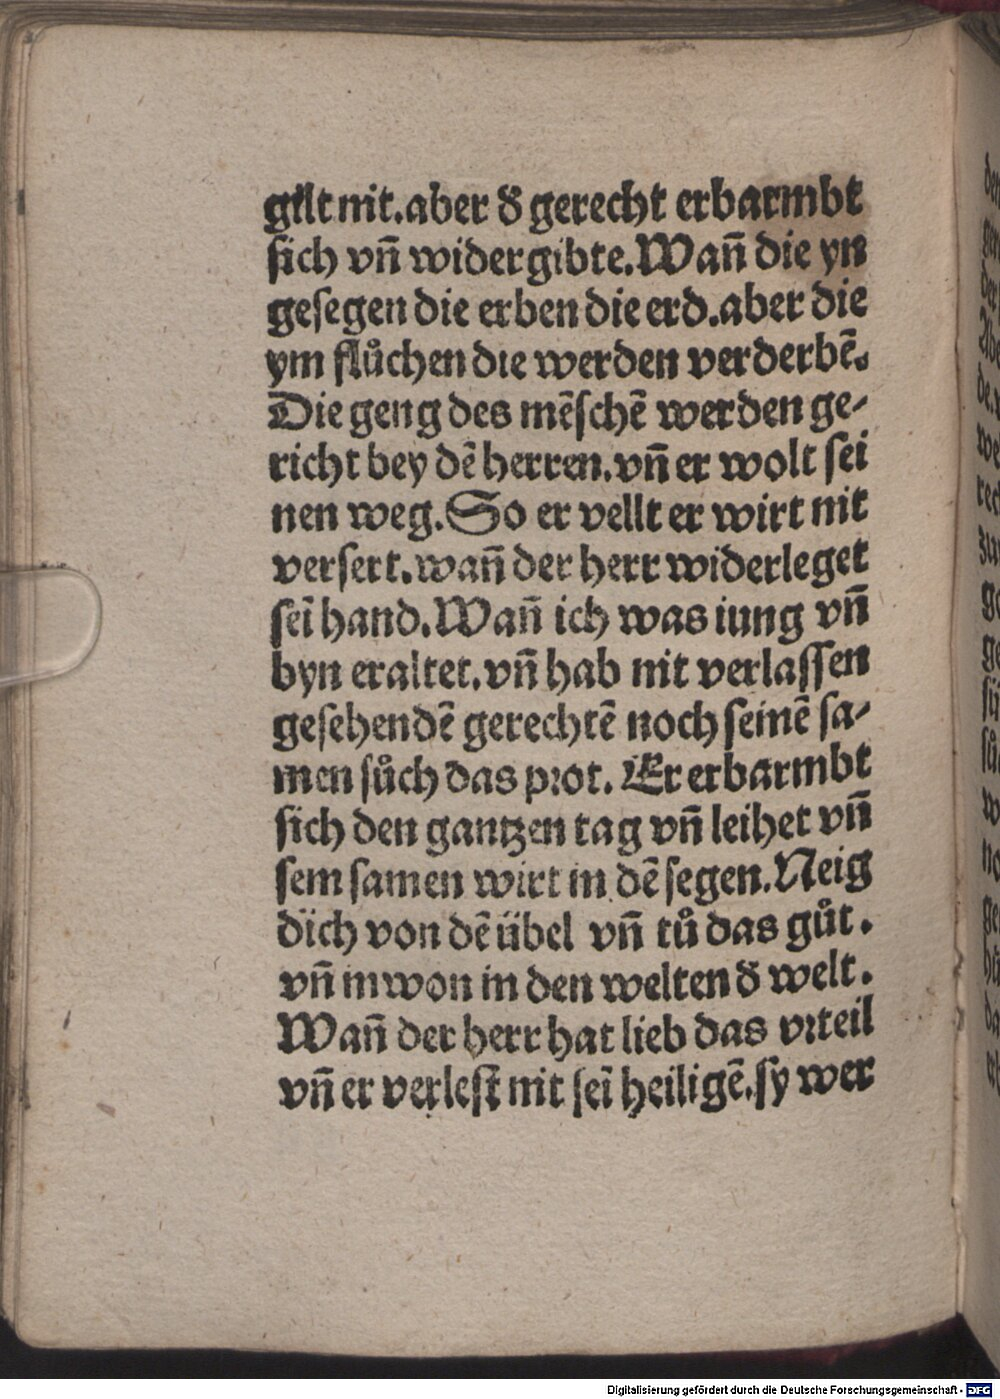 gilt nit. aber d̛ gerecht erbarmbt
sich vñ widergibte. Wañ die yn
gesegen die erben die erd. aber die
ym flůchen die werden verderbē.
Die geng des mēschē werden ge⸗
richt bey dē herren. vñ er wolt sei
nen weg. So er vellt er wirt nit
versert. wañ der herr widerleget
seī hand. Wañ ich was iung vñ
byn eraltet. vñ hab nit verlassen
gesehen dē gerechtē noch seinē sa⸗
men sůch das prot. Er erbarmbt
sich den gantzen tag vñ leihet vñ
sein samen wirt in dē segen. Neig
dich von dē übel vñ tů das gůt.
vñ inwon in den welten d̛ welt.
Wañ der herr hat lieb das vrteil
vñ er verlest nit seī heiligē. sy wer
Digitalisierung gefördert durch die Deutsche Forschungsgemeinschaft - DFG